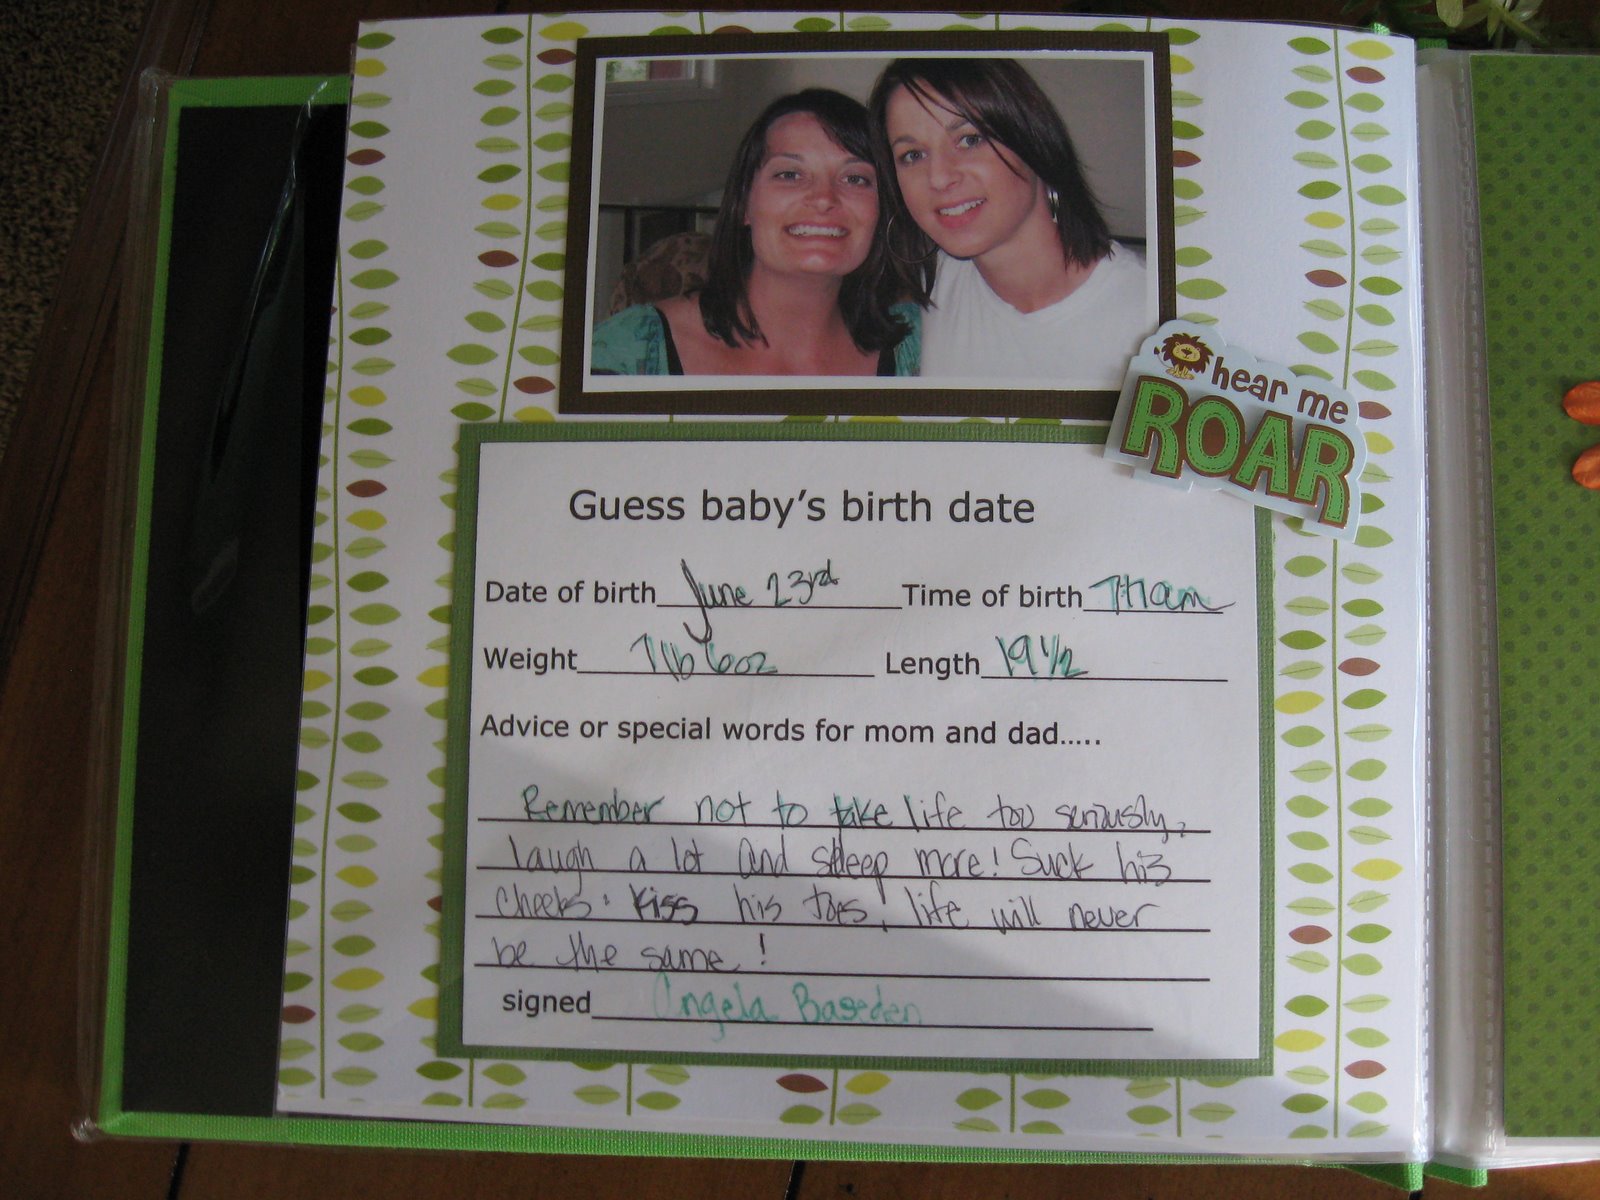 hear me
ROAR
Guess baby's birth date
Date of birth June 23rd Time of birth
Weight 7lb 6oz Length 19 1/2
Advice or special words for mom and dad.....
Remember not to take life too seriously,
laugh a lot and sleep more! Suck his
cheeks. Kiss his toes, life will never
be the same!
signed Angela Baseden